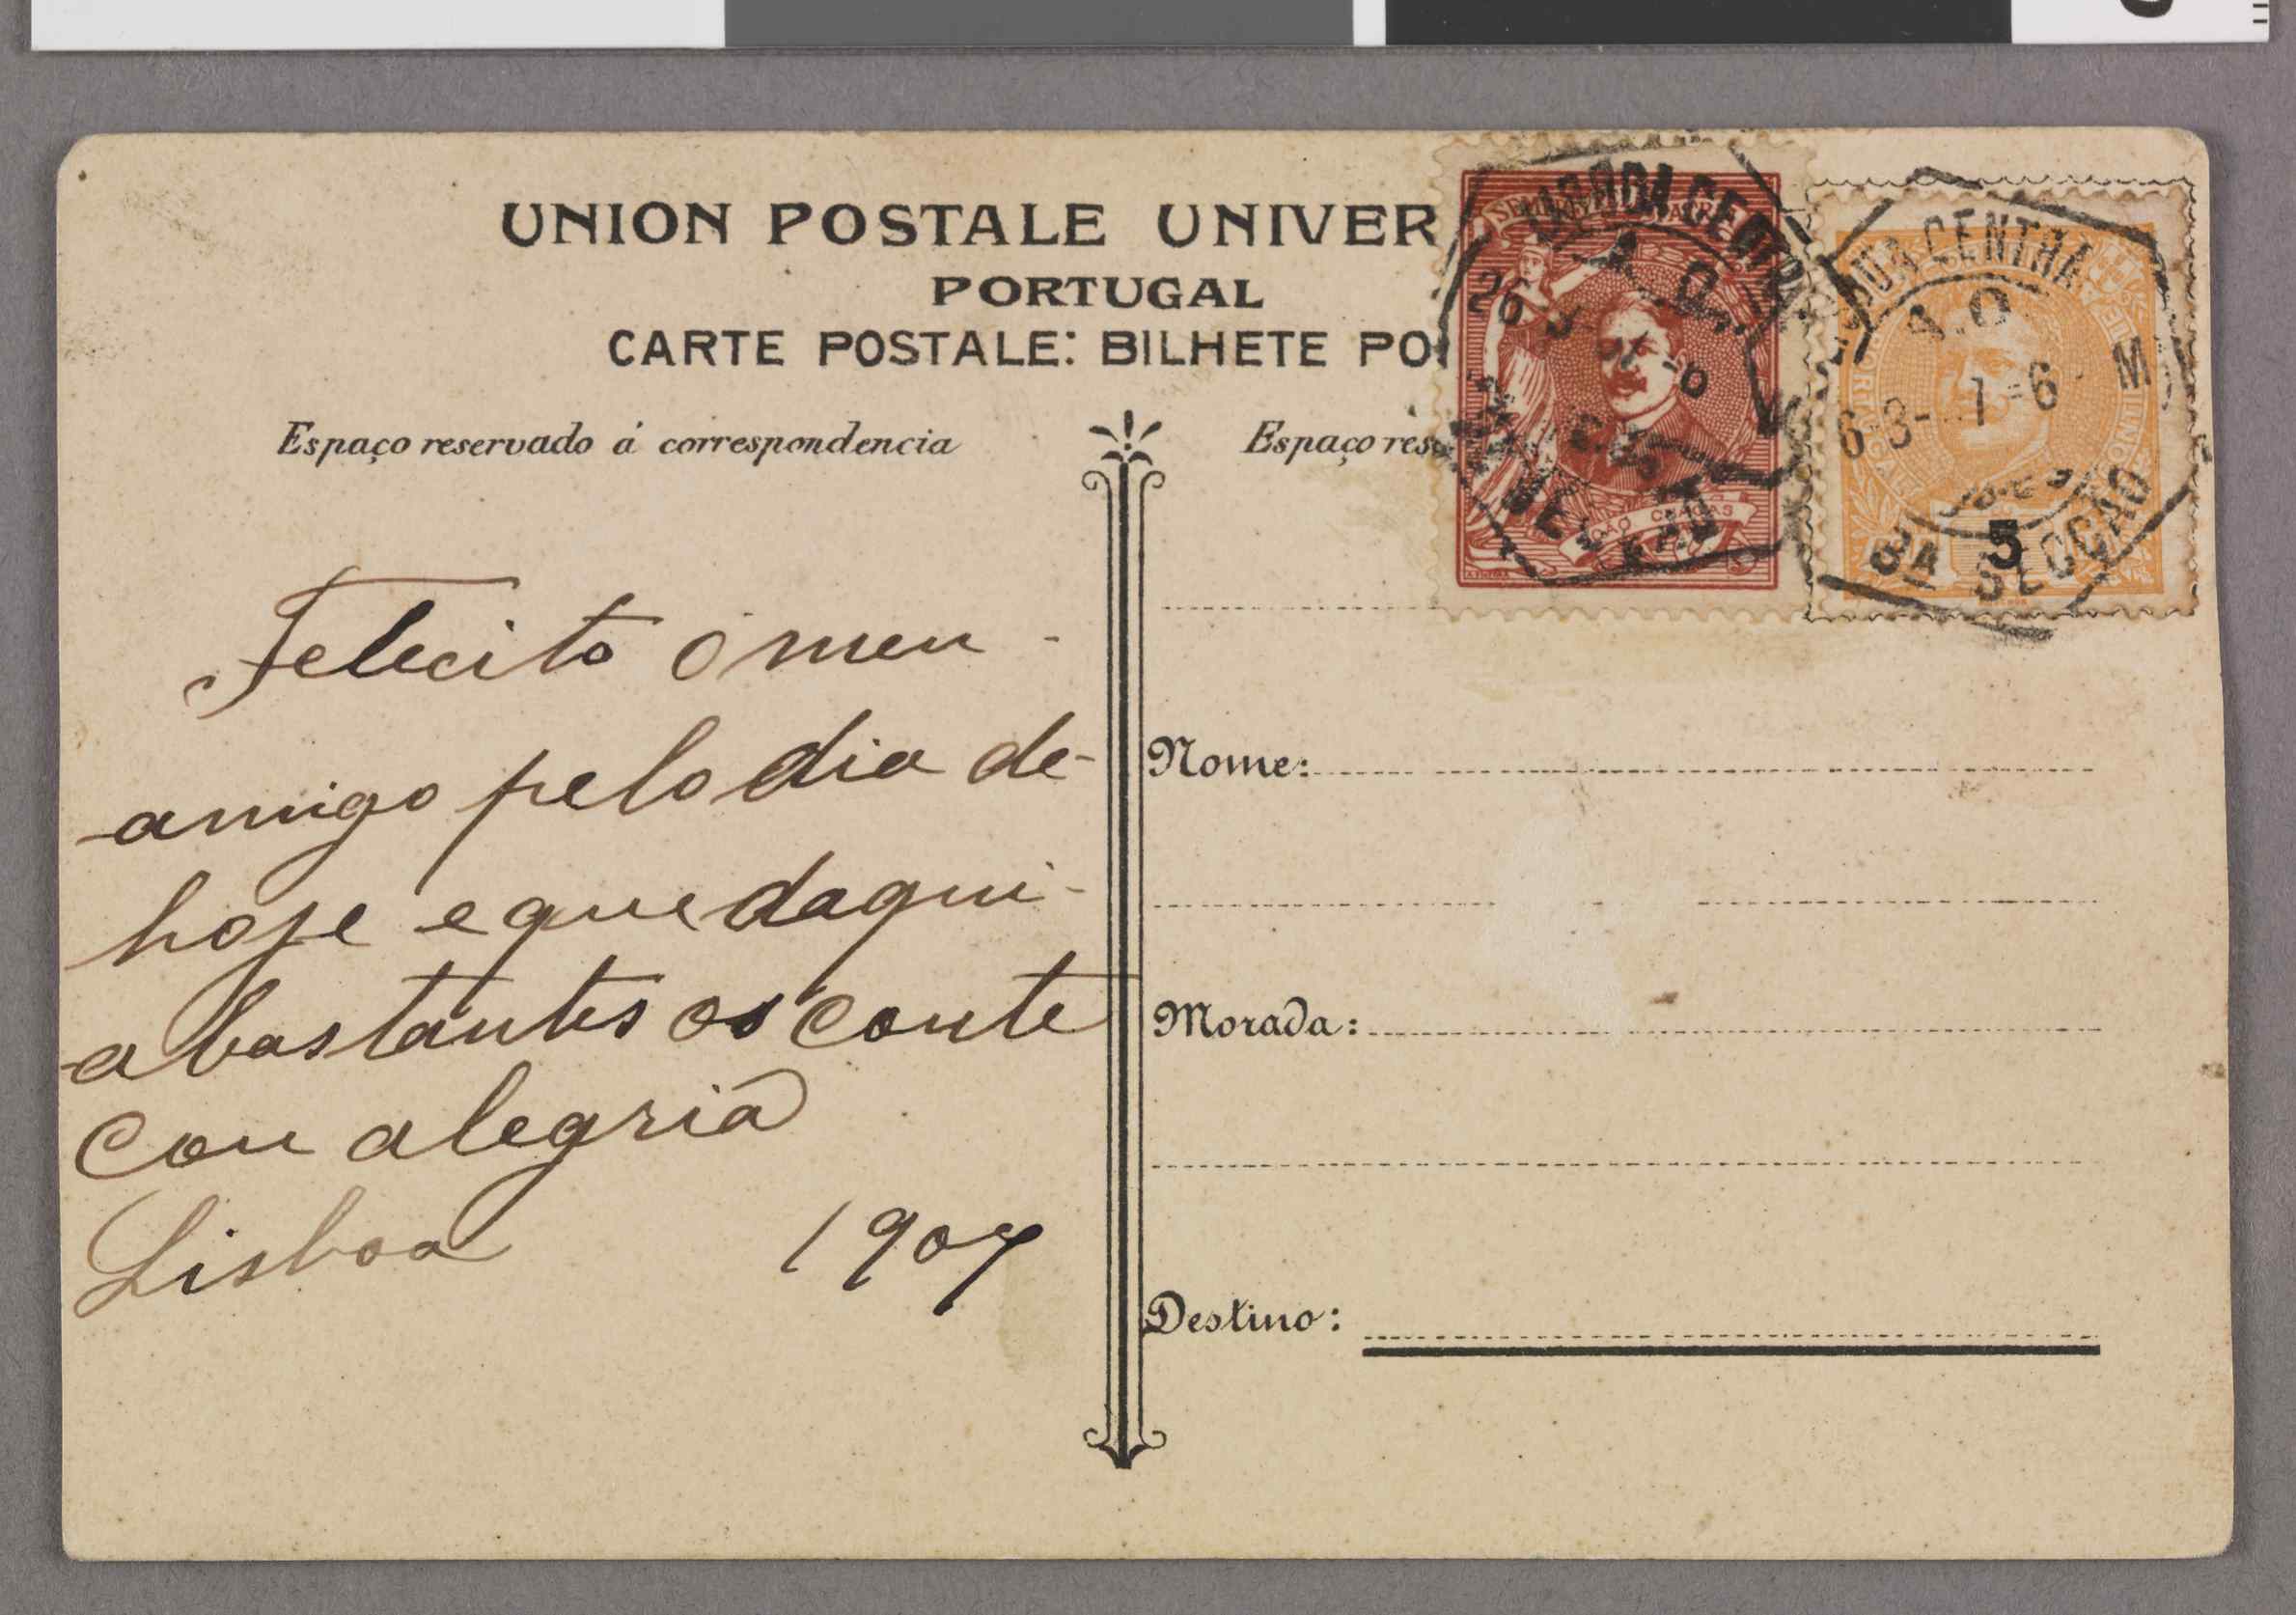 UNION POSTALE UNIVER
PORTUGAL
CARTE POSTALE: BILHETE PO
Espaço reservado á correspondencia
Espaço res
Felecito o meu
amigo pelo dia de
hoje e que daqui
a bastantes os conte
con alegria
Lisboa 1907
Nome:
Morada:
Destino:
CENTRA
A.O
6 3- 1-6 M
8A SECCAO
5
PORTUGAL
JOÃO CHAGAS
26